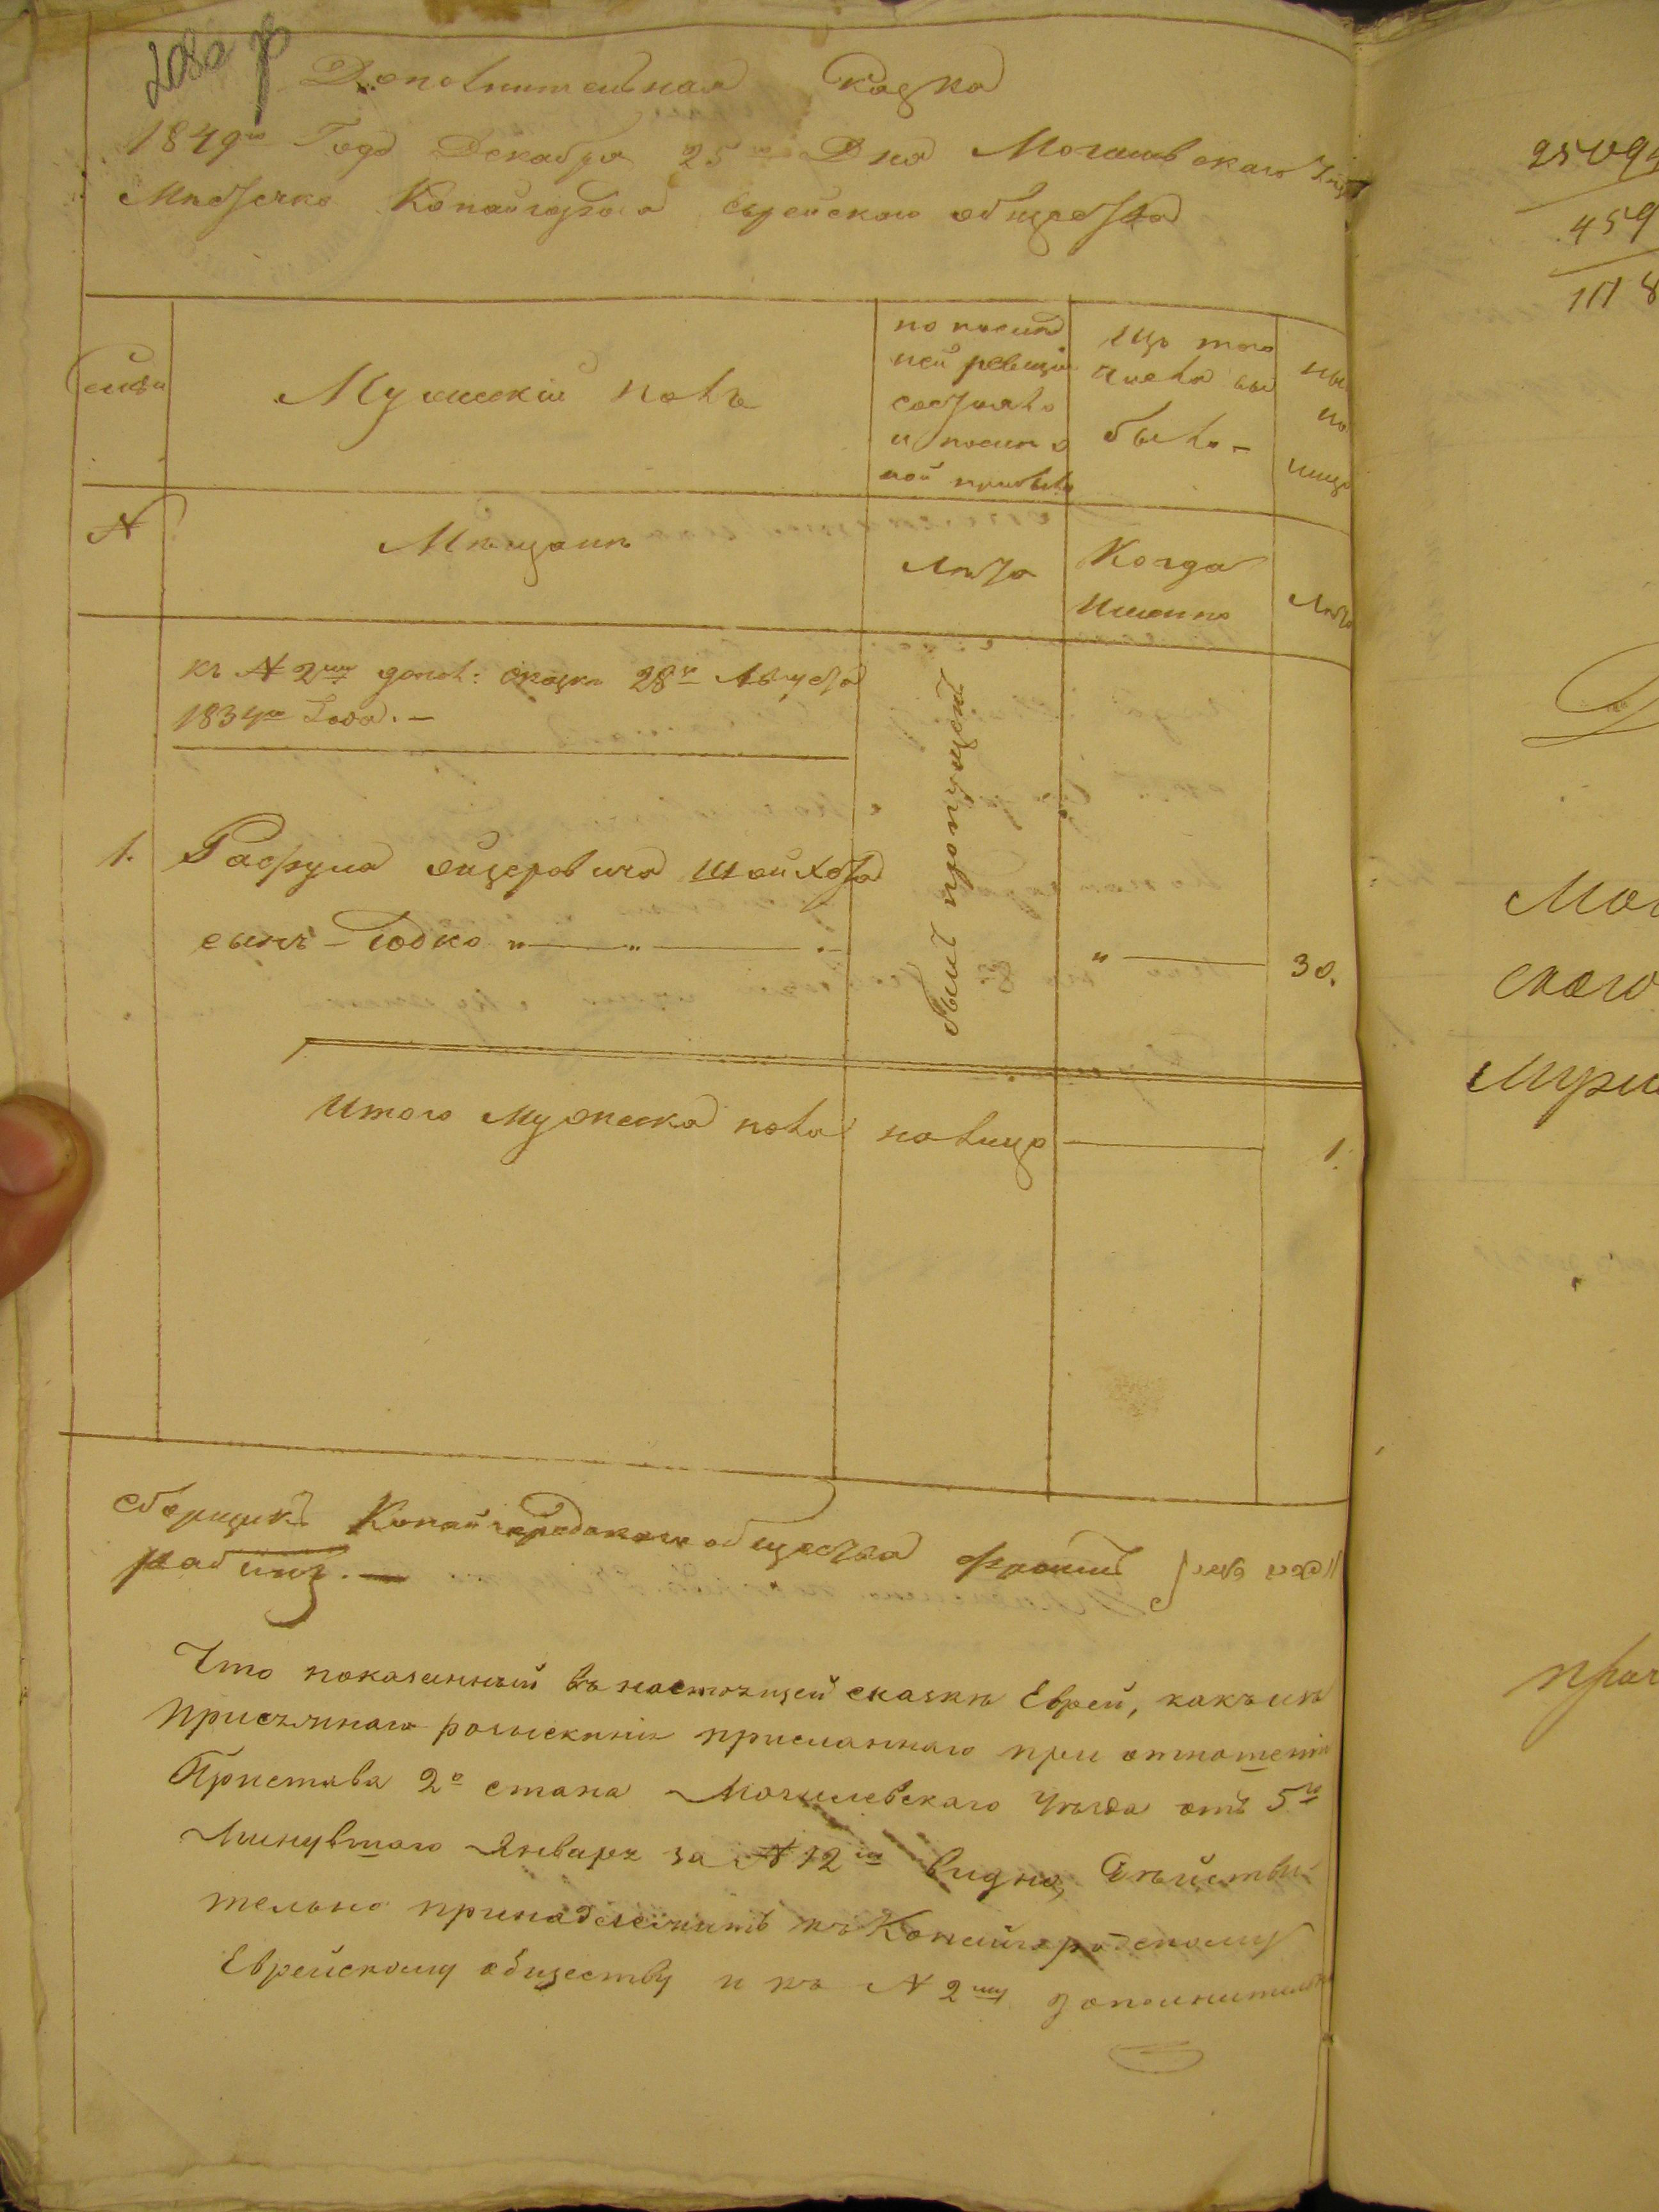 Дополнительная Скаска
1849го Года Декабря 25го Дня Могилевскаго
Местечко Копайгорода еврейскаго общества
Семьи
Мужескій полъ
по послед
ней ревизіи
состояло
и после
ной прибыло
изъ того
числа вы
было -
ны
не
лицо
№
Мещане
Лета
Когда
Именно
Лета
къ № 2му допол: скаски 28го Августа
1834го Года. -
Былъ пропущенъ
1. Рафула Лизеровича Шойхета
сынъ - Іодко " — " — -
" — 30.
Итого Мужеска пола налицо — 1.
сборщикъ Копайгородскаго общества Фроимъ
рабинъ. —
Что показанный въ настоящей сказкѣ Еврей, какъ изъ
присяжнаго розысканія присланнаго при отношеніи
Пристава 2го стана Могилевскаго Уѣзда отъ 5го
Минувшаго Января за № 12м видно, Дѣйстви-
тельно принадлежитъ къ Копайгородскому
Еврейскому обществу и къ № 2му дополнительн
459
1118
скаго